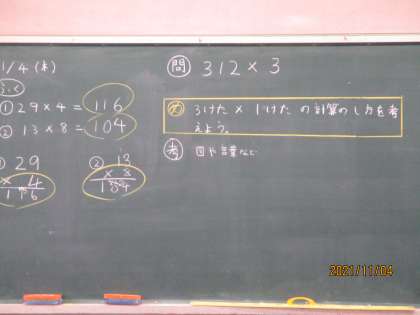 1/4(木)
① 29×4=116
② 13×8=104
29
× 4
116
② 13
× 8
104
問 312×3
め 3けた×1けたの計算のし方を考
えよう。
考 図や言葉など
2021/11/04